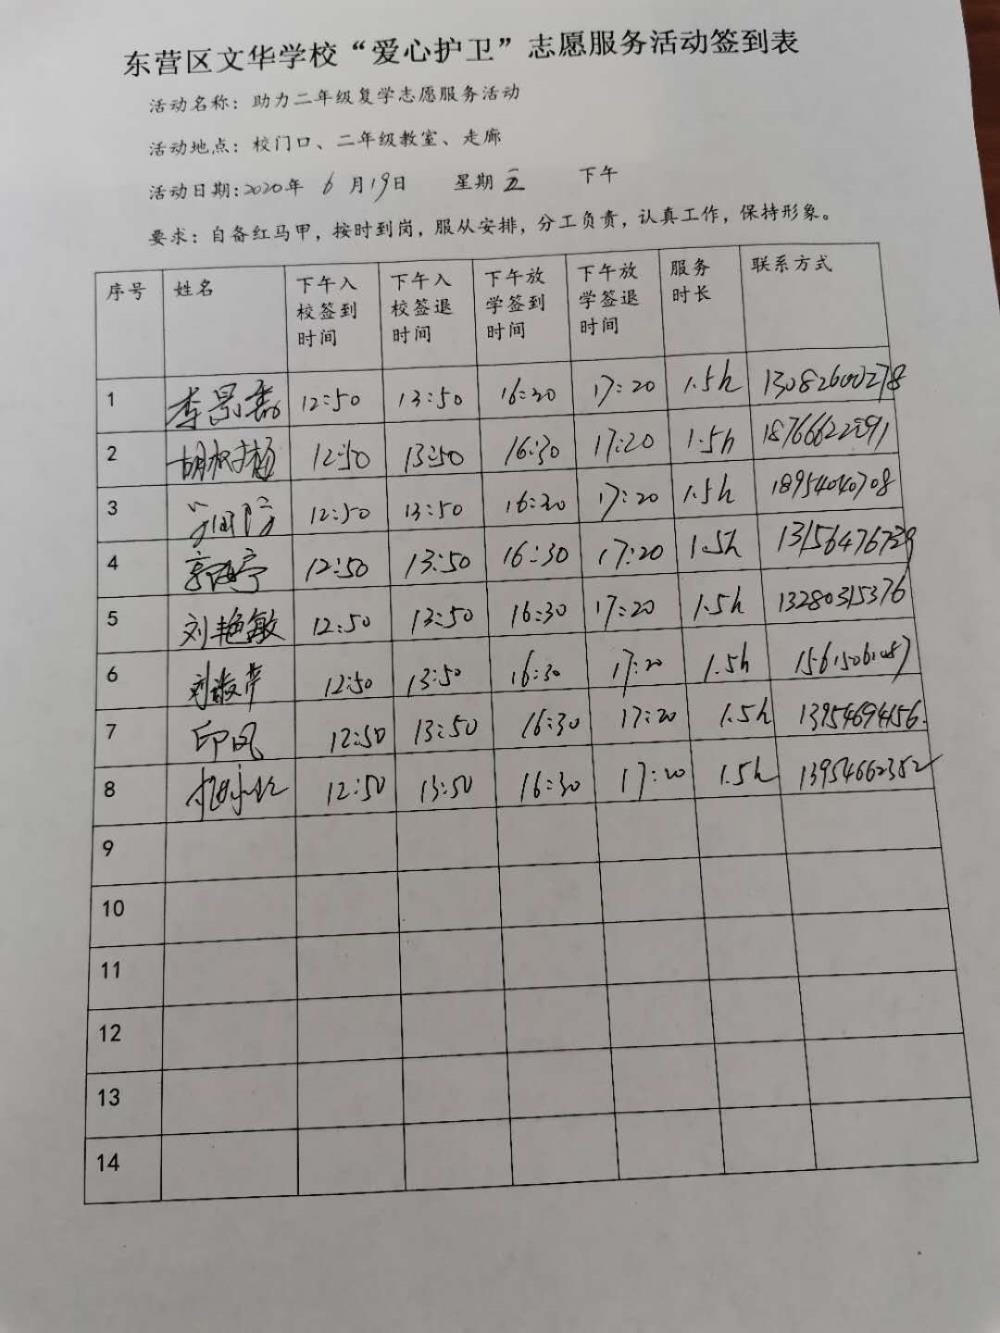 东营区文华学校“爱心护卫”志愿服务活动签到表
活动名称：助力二年级复学志愿服务活动
活动地点：校门口、二年级教室、走廊
活动日期:2020年 6月19日 星期五 下午
要求：自备红马甲，按时到岗，服从安排，分工负责，认真工作，保持形象。
序号 姓名 下午入校签到时间 下午入校签退时间 下午放学签到时间 下午放学签退时间 服务时长 联系方式
1 12:50 13:50 16:30 17:20 1.5h 13082600278
2 12:50 13:50 16:30 17:20 1.5h
3 12:50 13:50 16:30 17:20 1.5h 18954040708
4 12:50 13:50 16:30 17:20 1.5h
5 刘艳敏 12:50 13:50 16:30 17:20 1.5h 13280315376
6 12:50 13:50 16:30 17:20 1.5h 15615061087
7 印凤 12:50 13:50 16:30 17:20 1.5h 13954694156.
8 12:50 13:50 16:30 17:20 1.5h 13954662352
9
10
11
12
13
14